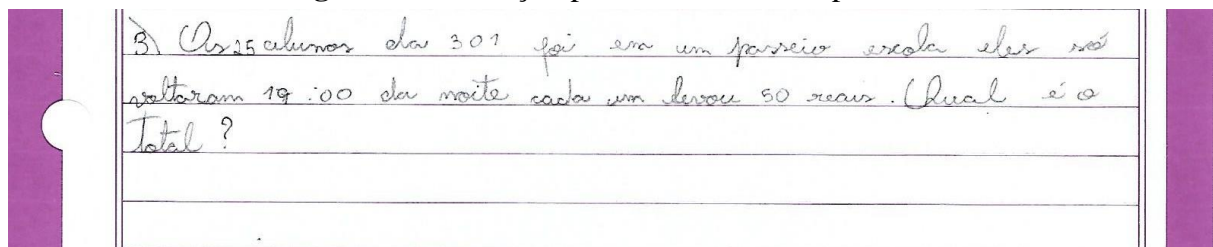 3) Os 25 alunos da 301 foi em um passeio escola eles só
voltaram 19:00 da noite cada um levou 50 reais. Qual é o
Total?